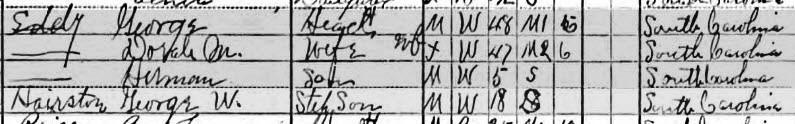 Eddy George Head M W 48 M1 South Carolina
Dovah M. Wife F W 47 M2 6 South Carolina
Herman Son M W 5 S South Carolina
Hairston George W. Step Son M W 18 S South Carolina